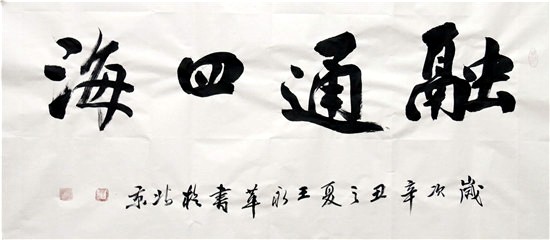 融通四海
歲次辛丑之夏王永書於北京